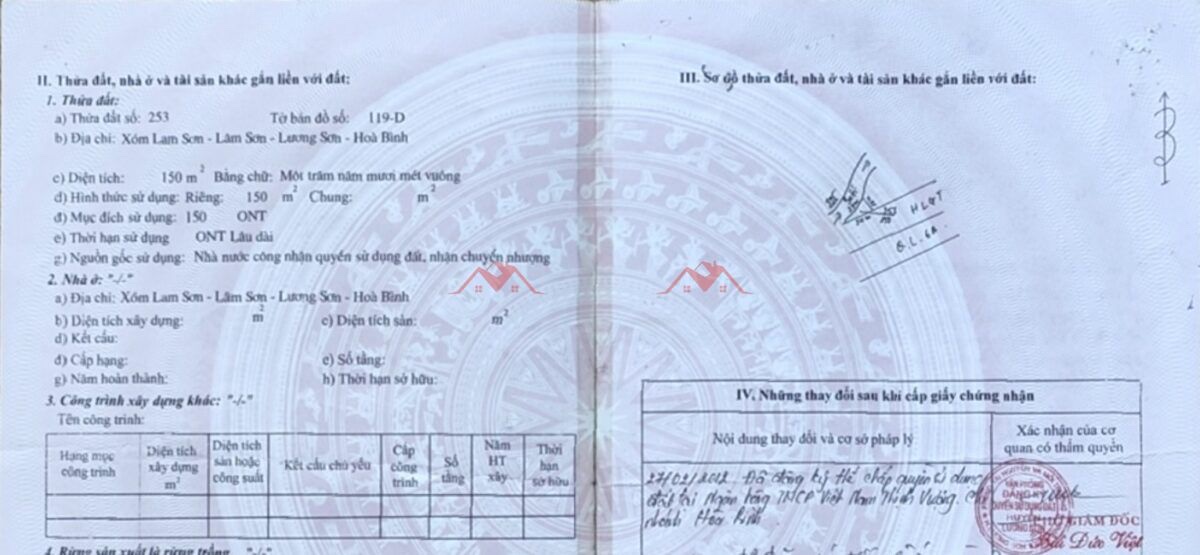 II. Thửa đất, nhà ở và tài sản khác gắn liền với đất:
1. Thửa đất:
a) Thửa đất số: 253 Tờ bản đồ số: 119-D
b) Địa chỉ: Xóm Lam Sơn - Lâm Sơn - Lương Sơn - Hoà Bình
c) Diện tích: 150 m2 Bằng chữ: Một trăm năm mươi mét vuông
d) Hình thức sử dụng: Riêng: 150 m2 Chung: m2
đ) Mục đích sử dụng: 150 ONT
e) Thời hạn sử dụng ONT Lâu dài
g) Nguồn gốc sử dụng: Nhà nước công nhận quyền sử dụng đất, nhận chuyển nhượng
2. Nhà ở: "-/-"
a) Địa chỉ: Xóm Lam Sơn - Lâm Sơn - Lương Sơn - Hoà Bình
b) Diện tích xây dựng: m2 c) Diện tích sàn: m2
d) Kết cấu:
đ) Cấp hạng: e) Số tầng:
g) Năm hoàn thành: h) Thời hạn sở hữu:
3. Công trình xây dựng khác: "-/-"
Tên công trình:
Hạng mục công trình
Diện tích xây dựng m2
Diện tích sàn hoặc công suất
Kết cấu chủ yếu
Cấp công trình
Số tầng
Năm HT xây
Thời hạn sở hữu
4. Rừng sản xuất là rừng trồng "-/-"
III. Sơ đồ thửa đất, nhà ở và tài sản khác gắn liền với đất:
B
HLGT
Q.L.6A
IV. Những thay đổi sau khi cấp giấy chứng nhận
Nội dung thay đổi và cơ sở pháp lý
Xác nhận của cơ quan có thẩm quyền
Đã đăng ký thế chấp quyền sử dụng
đất tại Ngân hàng TMCP Việt Nam Thịnh Vượng. Chi
nhánh Hòa Bình.
VĂN PHÒNG
ĐĂNG KÝ
QUYỀN SỬ DỤNG ĐẤT
GIÁM ĐỐC
Bùi Đức Việt